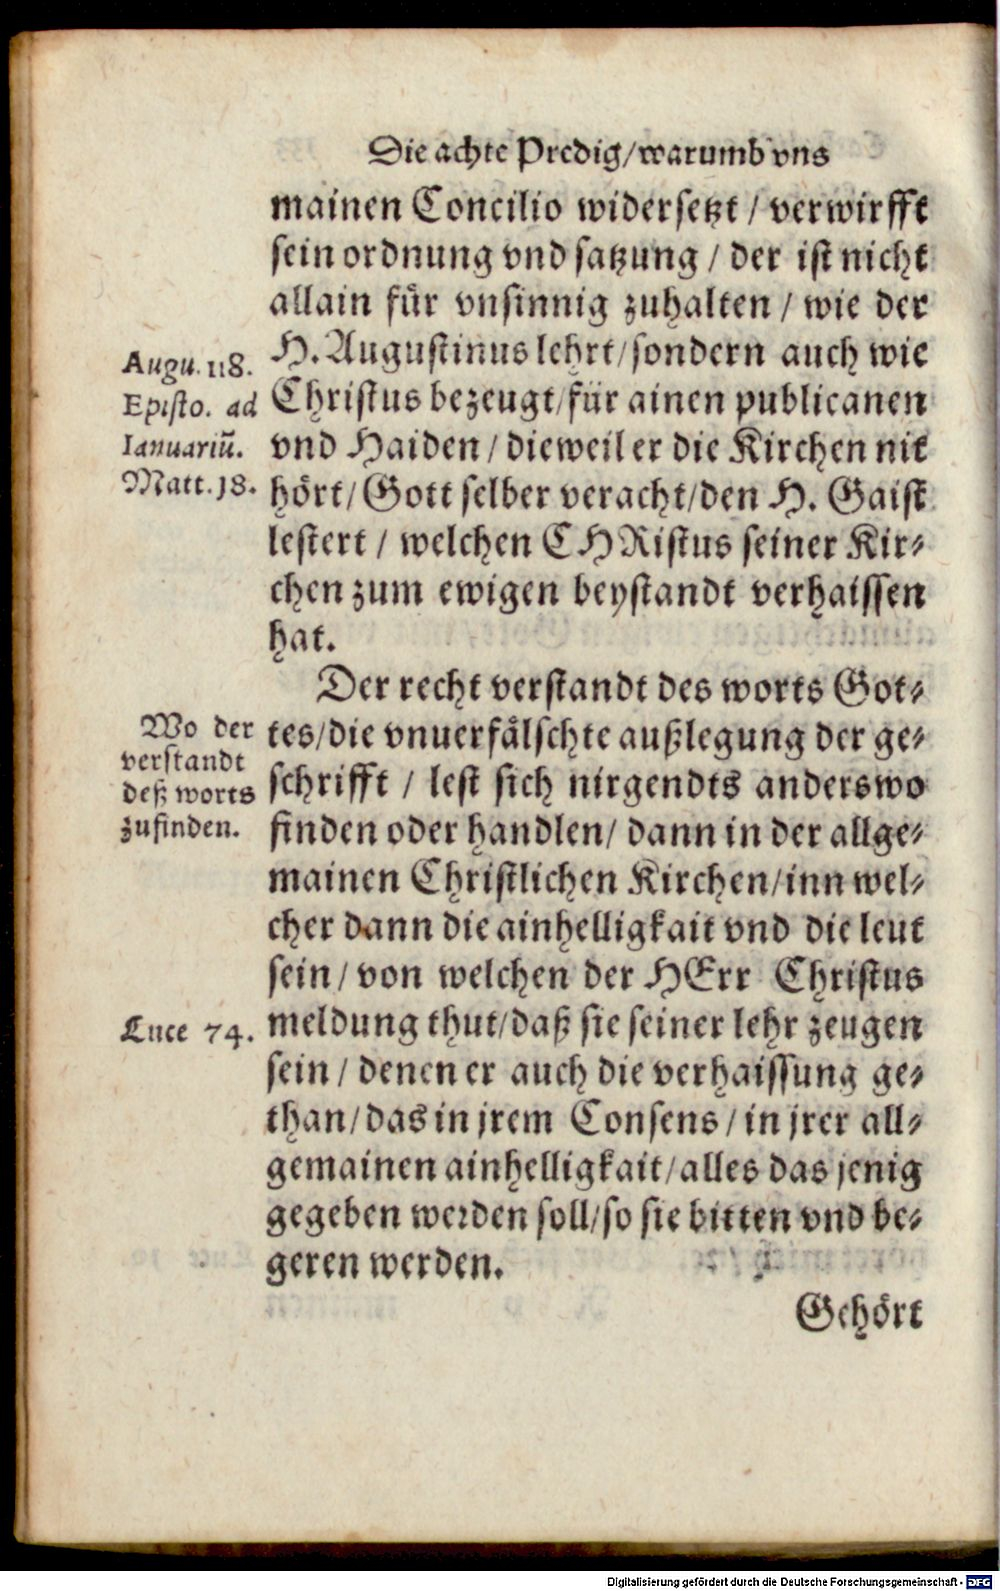 Die achte Predig/warumb vns
mainen Concilio widersetzt / verwirfft
sein ordnung vnd satzung / der ist nicht
allain für vnsinnig zuhalten / wie der
H. Augustinus lehrt/sondern auch wie
Christus bezeugt/für ainen publicanen
vnd Haiden / dieweil er die Kirchen nit
hört/Gott selber veracht/den H. Gaist
lestert / welchen CHRistus seiner Kir-
chen zum ewigen beystandt verhaissen
hat.
Augu. 118.
Episto. ad
Ianuariū.
Matt. 18.
Der recht verstandt des worts Got-
tes/die vnuerfälschte außlegung der ge-
schrifft / lest sich nirgendts anderswo
finden oder handlen/ dann in der allge-
mainen Christlichen Kirchen/inn wel-
cher dann die ainhelligkait vnd die leut
sein / von welchen der HErr Christus
meldung thut/daß sie seiner lehr zeugen
sein / denen er auch die verhaissung ge-
than/das in jrem Consens / in jrer all-
gemainen ainhelligkait/alles das jenig
gegeben werden soll/so sie bitten vnd be-
geren werden.
Wo der
verstandt
deß worts
zufinden.
Luce 74.
Gehört
Digitalisierung gefördert durch die Deutsche Forschungsgemeinschaft - DFG